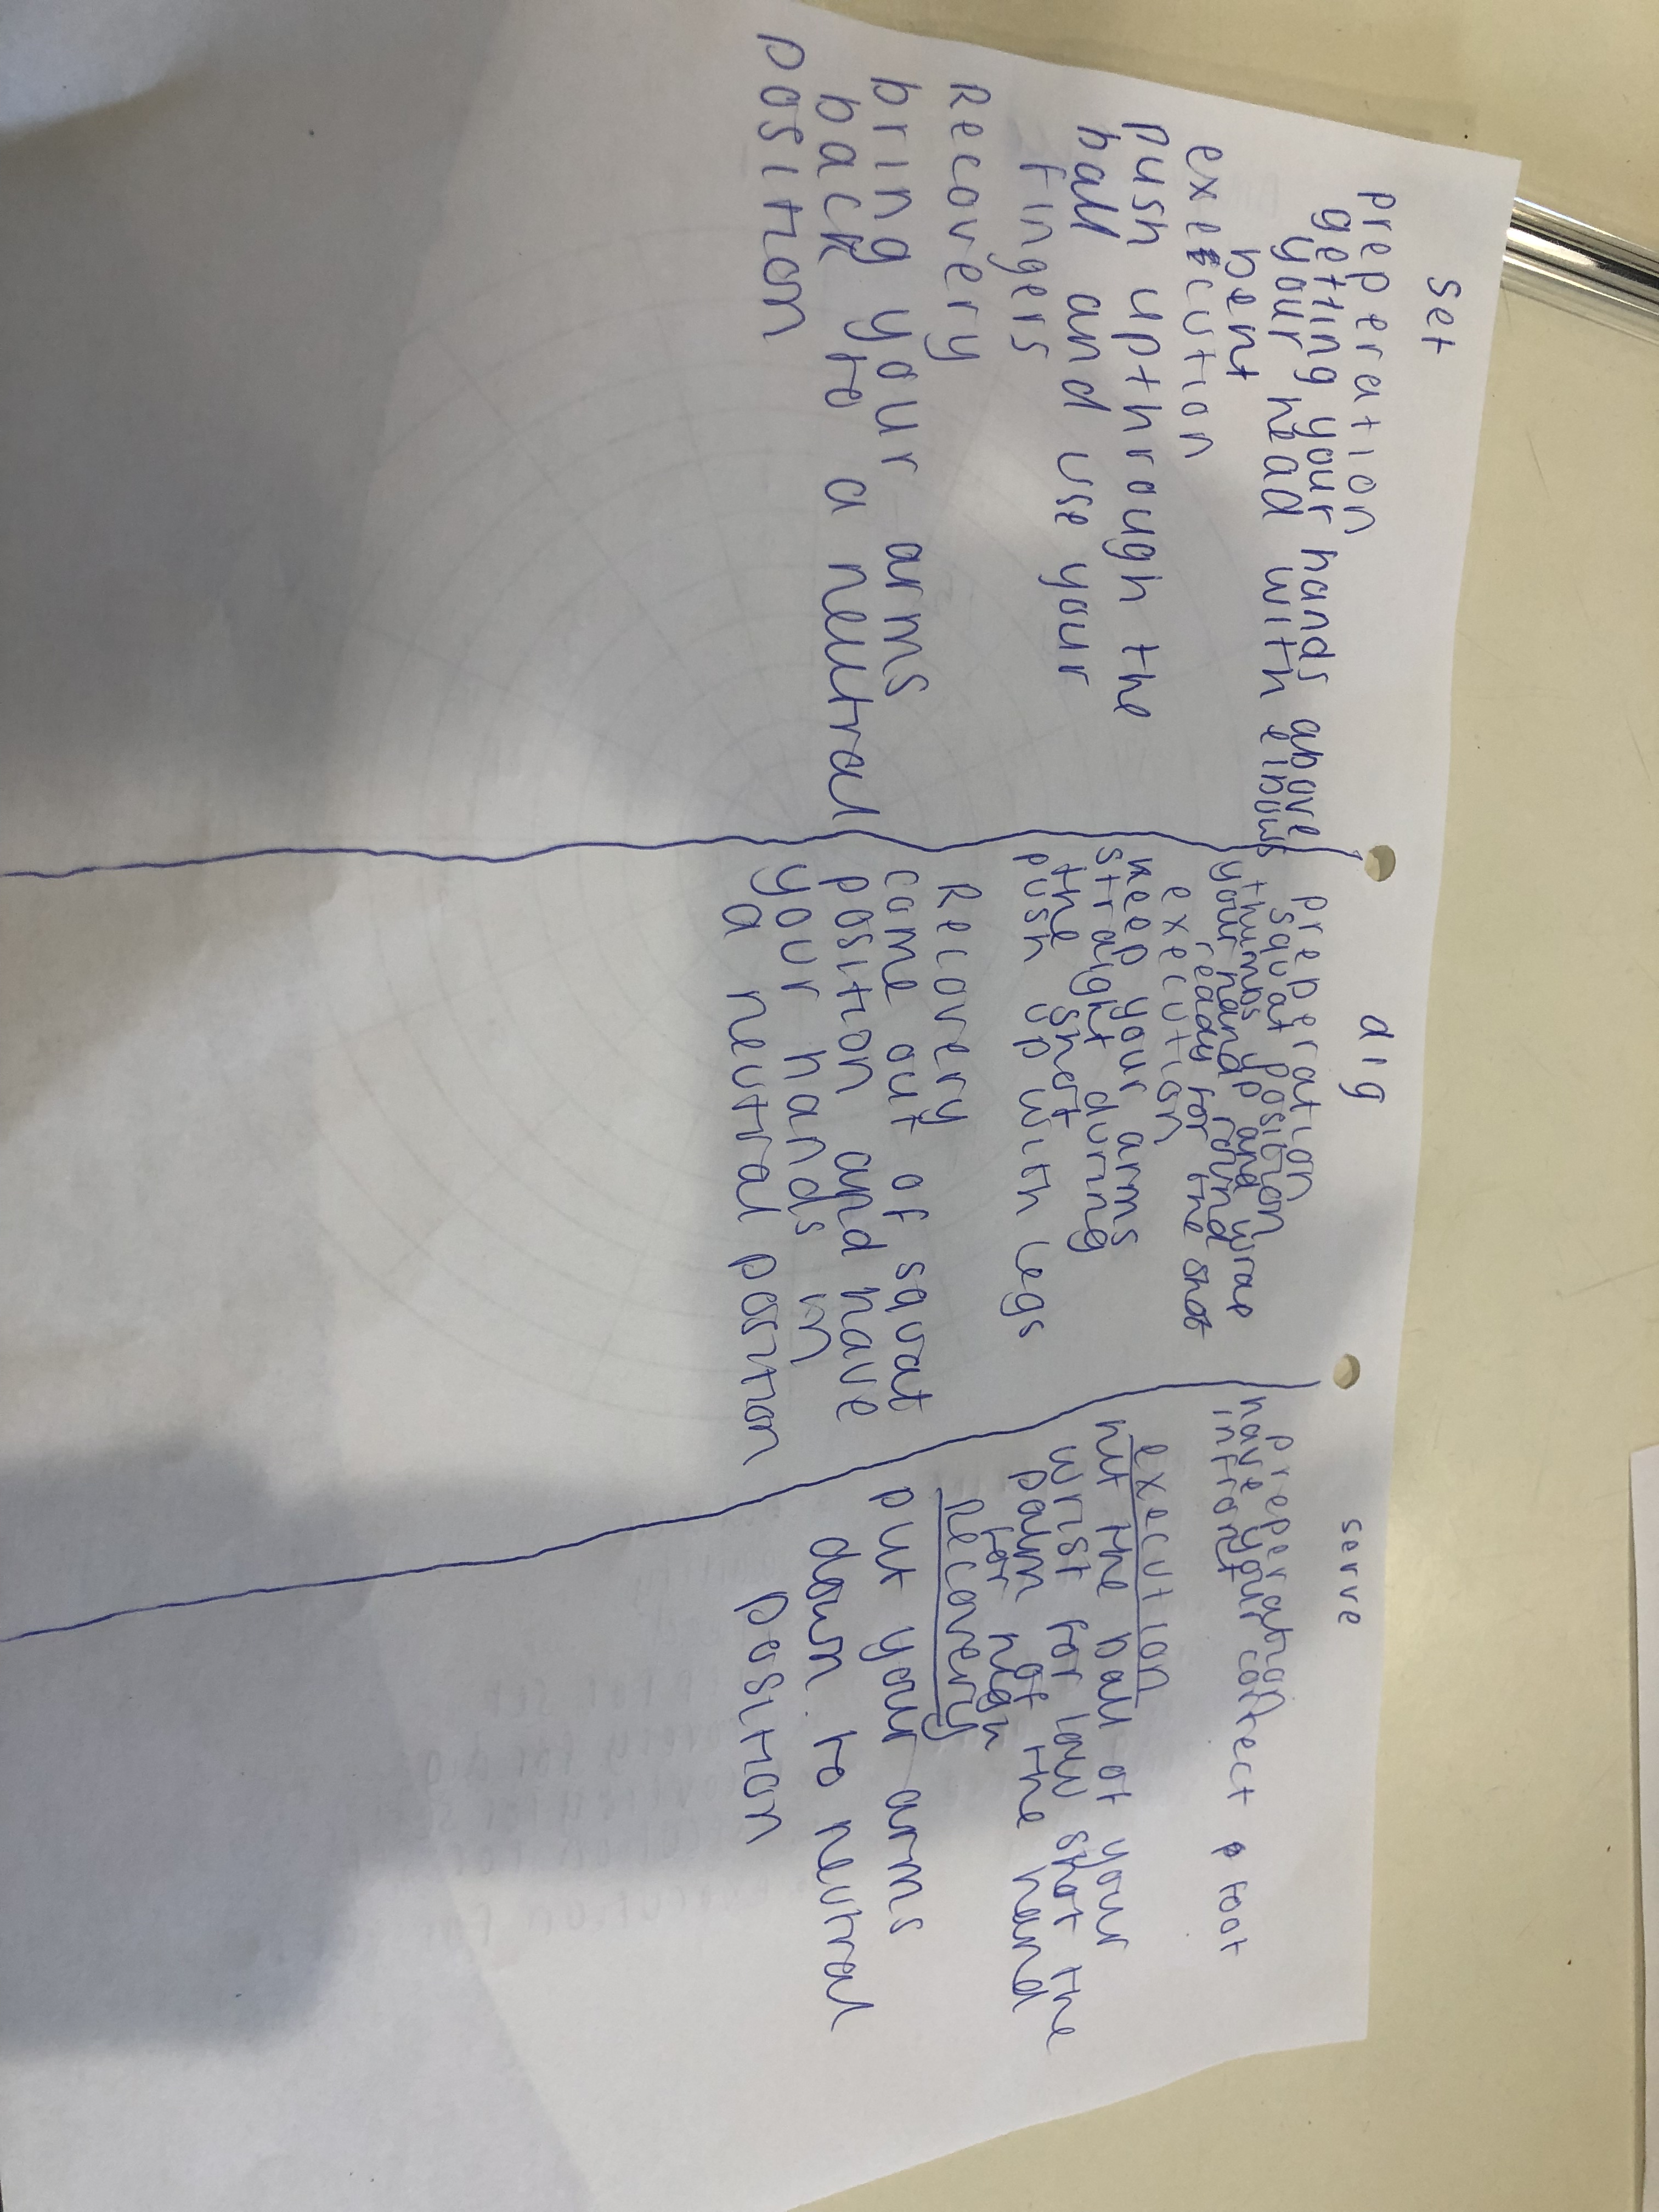 set
preperation
getting your hands above
your head with elbows
bent
execution
push up through the
ball and use your
fingers
Recovery
bring your arms
back to a neutral
position
dig
preperation
squat position
thumbs up and wrap
your hand round
ready for the shot
execution
keep your arms
straight during
the shot
push up with legs
Recovery
come out of squat
position and have
your hands in
a neutral position
serve
preperation
have your correct foot
infront
execution
hit the ball of your
wrist for low shot the
palm of the hand
for high
Recovery
put your arms
down to neutral
position